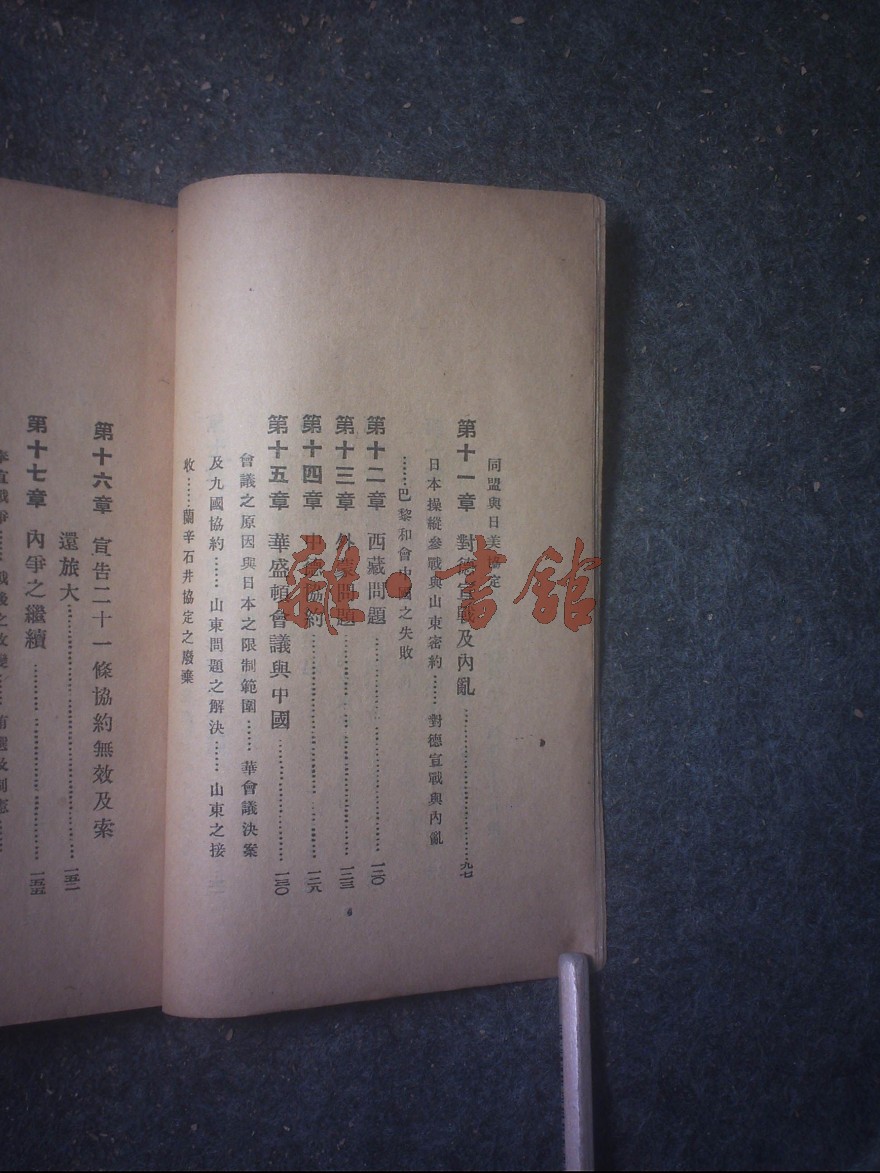 同盟與日美協定
第十一章 對德宣戰及內亂……九七
日本操縱參戰與山東密約……對德宣戰與內亂
……巴黎和會中國之失敗
第十二章 西藏問題……一二〇
第十三章 外蒙問題……一二三
第十四章 中德協約……一二八
第十五章 華盛頓會議與中國……一三〇
會議之原因與日本之限制範圍……華會議決案
及九國協約……山東問題之解決……山東之接
收……蘭辛石井協定之廢棄
第十六章 宣告二十一條協約無效及索
還旅大……一五二
第十七章 內爭之繼續……一五五
雜·書館